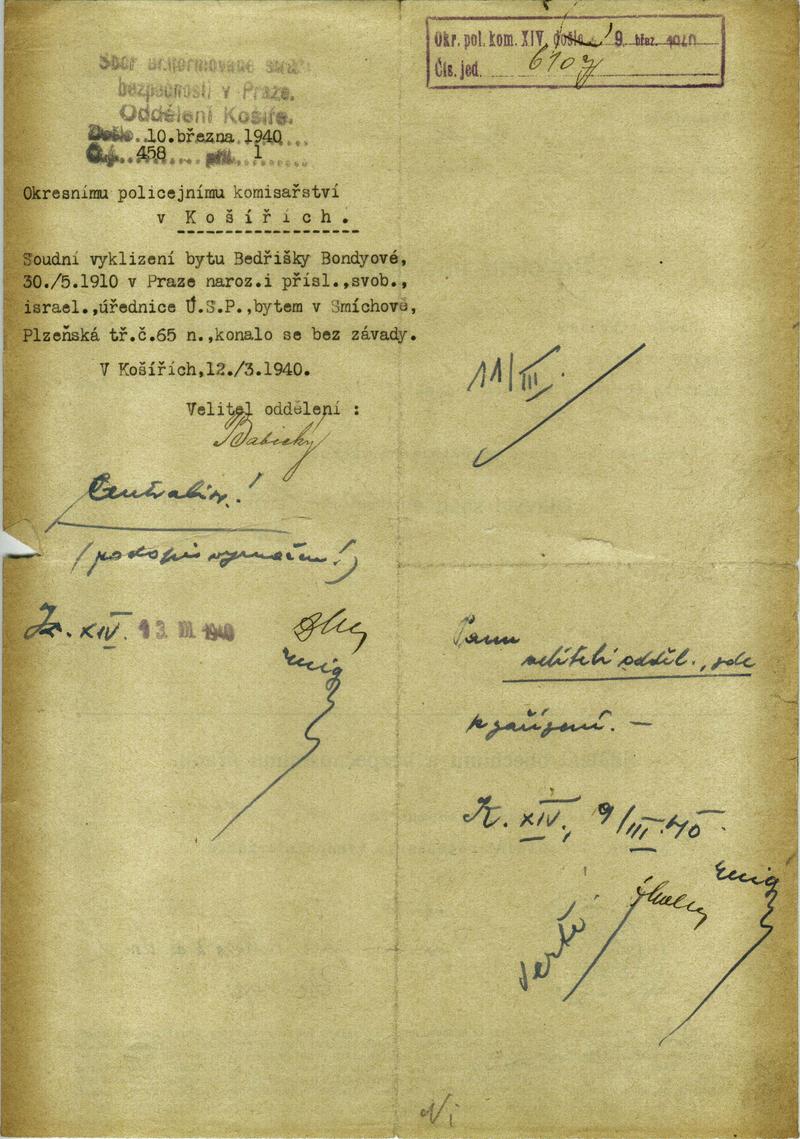 Sbor uniformované stráže
bezpečnosti v Praze.
Oddělení Košíře.
Došlo 10.března 1940
Č.j. 458 příl. 1
Okresnímu policejnímu komisařství
v Košířích.
Soudní vyklizení bytu Bedřišky Bondyové,
30./5.1910 v Praze naroz.i přísl.,svob.,
israel.,úřednice Ú.S.P.,bytem v Smíchově,
Plzeňská tř.č.65 n.,konalo se bez závady.
V Košířích,12./3.1940.
Velitel oddělení :
Babický
K. XIV. 13. III. 1940
Okr. pol. kom. XIV. došlo 9. břez. 1940
Čís. jed. 6107
11/III.
Panu
veliteli odděl., zde
k zařízení. —
K. XIV., 9/III.40.
verte!